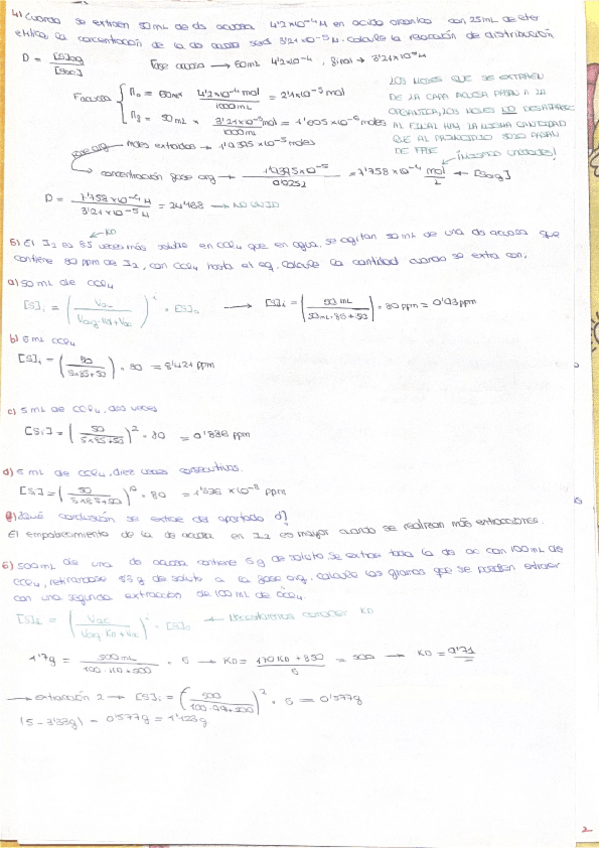 4) Cuando se extraen 50 mL de ds acuosa 4'2×10⁻⁴ M en acido organico con 25 mL de éter
etílico, la concentración de la ds acuosa será 3'21×10⁻⁵ M. calcule la relación de distribución
D = [S]org / [S]ac Fase acuosa → 50mL 4'2×10⁻⁴, final → 3'21×10⁻⁵ M
F acuosa
n₀ = 50mL × 4'2×10⁻⁴ mol / 1000 mL = 2'1×10⁻⁵ mol
= 50 mL × 3'21×10⁻⁵ mol / 1000 mL = 1'605×10⁻⁶ moles
LOS MOLES QUE SE EXTRAEN
DE LA CAPA ACUOSA PASAN A LA
ORGANICA, LOS MOLES NO DESAPARECEN
AL FINAL HAY LA MISMA CANTIDAD
QUE AL PRINCIPIO SOLO PASAN
DE FASE
¡MISMAS UNIDADES!
fase org → moles extraidos → 1'9395×10⁻⁵ moles
concentración fase org → 1'9395×10⁻⁵ / 0'025L = 7'758×10⁻⁴ mol/L ← [S]org
D = 7'758×10⁻⁴ M / 3'21×10⁻⁵ M = 24'168 →
KD
5) El I₂ es 85 veces más soluble en CCl₄ que en agua. se agitan 50 mL de una ds acuosa que
contiene 80 ppm de I₂, con CCl₄ hasta el eq. Calcule la cantidad cuando se extra con,
a) 50 mL de CCl₄
[S]ᵢ = (Vac / Vorg·KD+Vac)ⁱ · [S]₀ → [S]ᵢ = (50 mL / 50mL·85+50) · 80 ppm = 0'93 ppm
b) 5 mL CCl₄
[S]ᵢ = (50 / 5×85+50) · 80 = 8'421 ppm
c) 5 mL de CCl₄, dos veces
[Sᵢ] = (50 / 5×85+50)² · 80 = 0'886 ppm
d) 5 mL de CCl₄, diez veces consecutivas.
[S] = (50 / 5×85+50)¹⁰ · 80 = ×10⁻⁸ ppm
e) ¿Qué conclusión se extrae del apartado d)?
El empobrecimiento de la ds acuosa en I₂ es mayor cuando se realizan más extracciones.
6) 500 mL de una ds acuosa contiene 5 g de soluto. Se extrae toda la ds ac con 100 mL de
CCl₄, retirandose de soluto a la fase org. calcule los gramos que se pueden extraer
con una segunda extracción de 100 mL de CCl₄.
[S]ᵢ = (Vac / Vorg KD+Vac)ⁱ · [S]₀ ← Necesitamos conocer KD
1'7g = 500 mL / 100·KD+500 · 5 → KD = 170KD + 850 / 5 = 500 → KD =
→ extracción 2 → [S]ᵢ = (500 / )² · 5 = 0'577g
(5 - 3'33g) - 0'577g = 1'123g
2